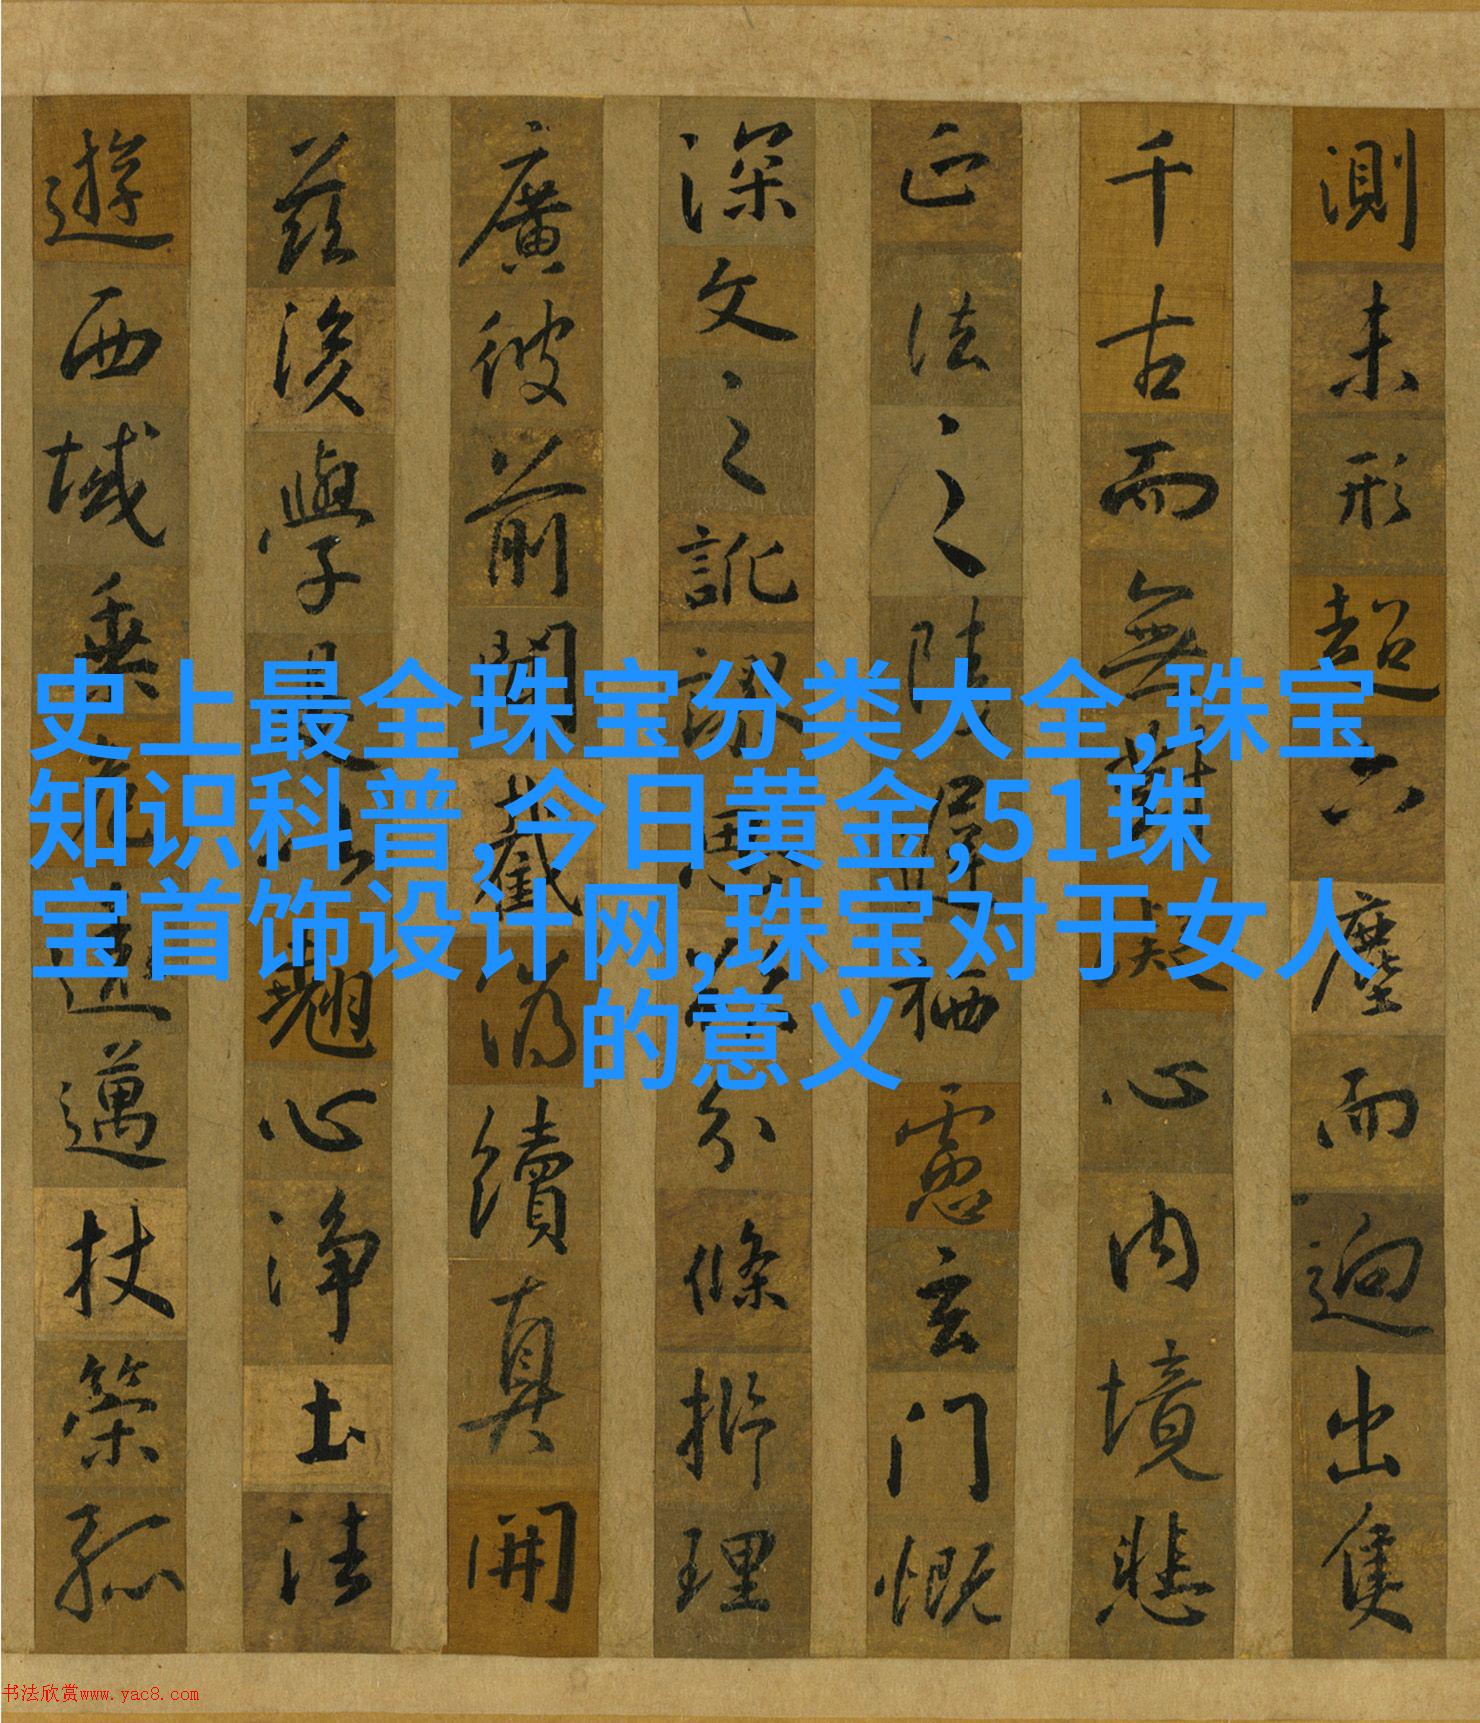 測未形超六塵而迥出隻
千古而無對凝心內境悲
正法之陵遲栖慮玄門慨
深文之訛謬思欲分條析理
廣彼前聞截偽續真開
茲後學是以翹心淨土法
遊西域乗危遠邁杖策孤
史上最全珠宝分类大全,珠宝
知识科普,今日黄金,51珠
宝首饰设计网,珠宝对于女人
的意义
书法欣赏www.yac8.com